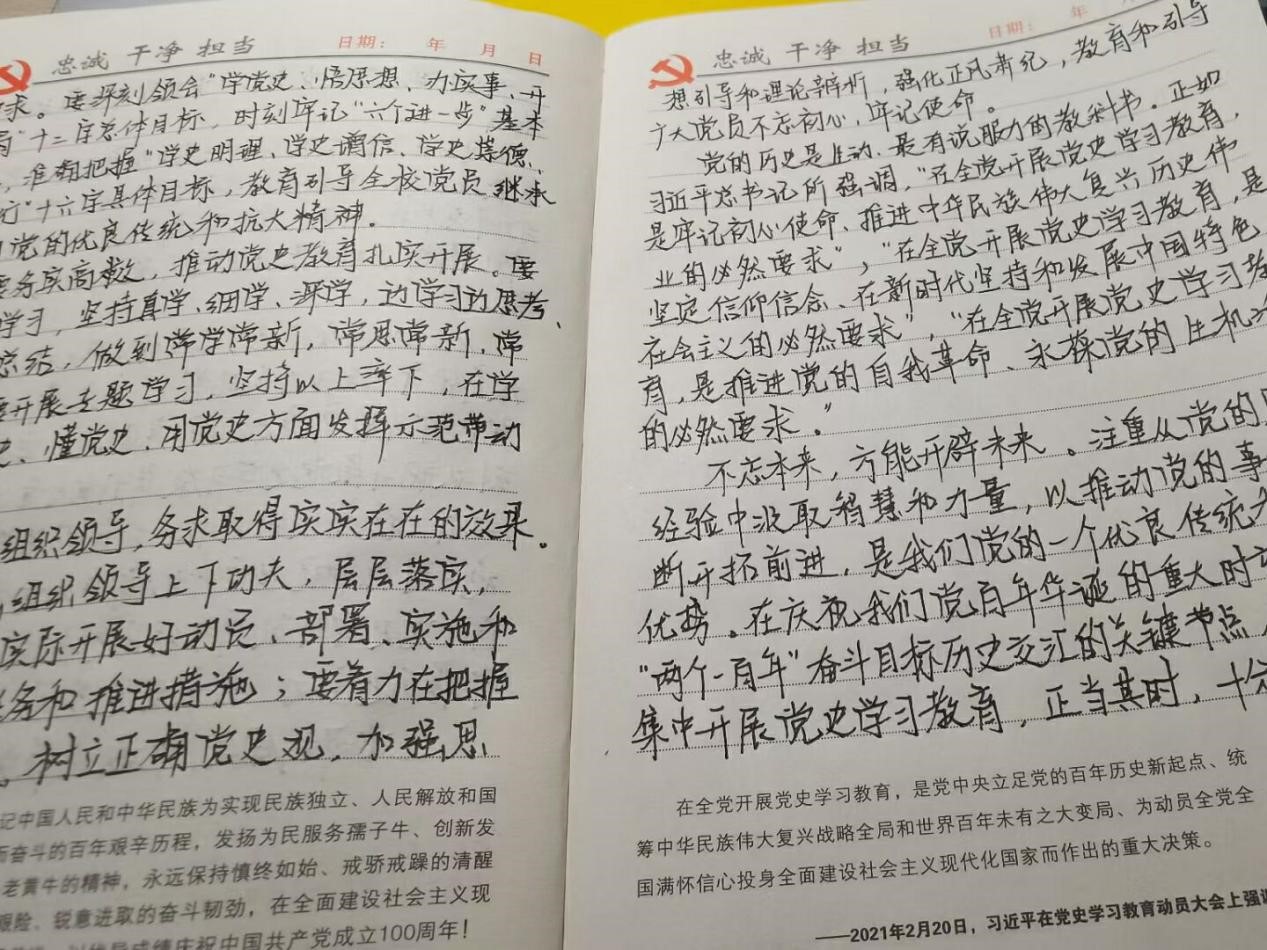 忠诚 干净 担当
日期: 年 月 日
求。要深刻领会"学党史、悟思想、办实事、开
局"十二字总体目标，时刻牢记"六个进一步"基本
，准确把握"学史明理、学史增信、学史崇德、
行"十六字具体目标，教育引导全校党员继承
党的优良传统和抗大精神。
要务实高效，推动党史教育扎实开展。要
学习，坚持真学、细学、深学，边学习边思考、
总结，做到常学常新，常思常新，常
要开展专题学习，坚持以上率下，在学
史、懂党史、用党史方面发挥示范带动
组织领导，务求取得实实在在的效果。
组织领导上下功夫，层层落实，
实际开展好动员、部署、实施和
务和推进措施；要着力在把握
，树立正确党史观，加强思
记中国人民和中华民族为实现民族独立、人民解放和国
而奋斗的百年艰辛历程，发扬为民服务孺子牛、创新发
老黄牛的精神，永远保持慎终如始、戒骄戒躁的清醒
艰险、锐意进取的奋斗韧劲，在全面建设社会主义现
成绩庆祝中国共产党成立100周年！
忠诚 干净 担当
日期: 年
想引导和理论辨析，强化正风肃纪，教育和引导
广大党员不忘初心，牢记使命。
党的历史是生动、最有说服力的教科书。正如
习近平总书记所强调，"在全党开展党史学习教育，
是牢记初心使命、推进中华民族伟大复兴历史伟
业的必然要求"，"在全党开展党史学习教育，是
坚定信仰信念、在新时代坚持和发展中国特色
社会主义的必然要求"，"在全党开展党史学习教
育，是推进党的自我革命、永葆党的生机
的必然要求。"
不忘本来，方能开辟未来。注重从党的
经验中汲取智慧和力量，以推动党的事
断开拓前进，是我们党的一个优良传统
优势。在庆祝我们党百年华诞的重大时
"两个一百年"奋斗目标历史交汇的关键节点
集中开展党史学习教育，正当其时，十分
在全党开展党史学习教育，是党中央立足党的百年历史新起点、统
筹中华民族伟大复兴战略全局和世界百年未有之大变局、为动员全党全
国满怀信心投身全面建设社会主义现代化国家而作出的重大决策。
——2021年2月20日，习近平在党史学习教育动员大会上强调